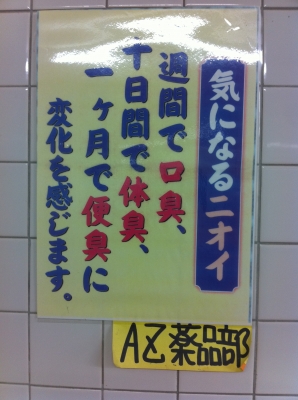 気になるニオイ
一週間で口臭、
十日間で体臭、
一ヶ月で便臭に
変化を感じます。
AZ薬品部